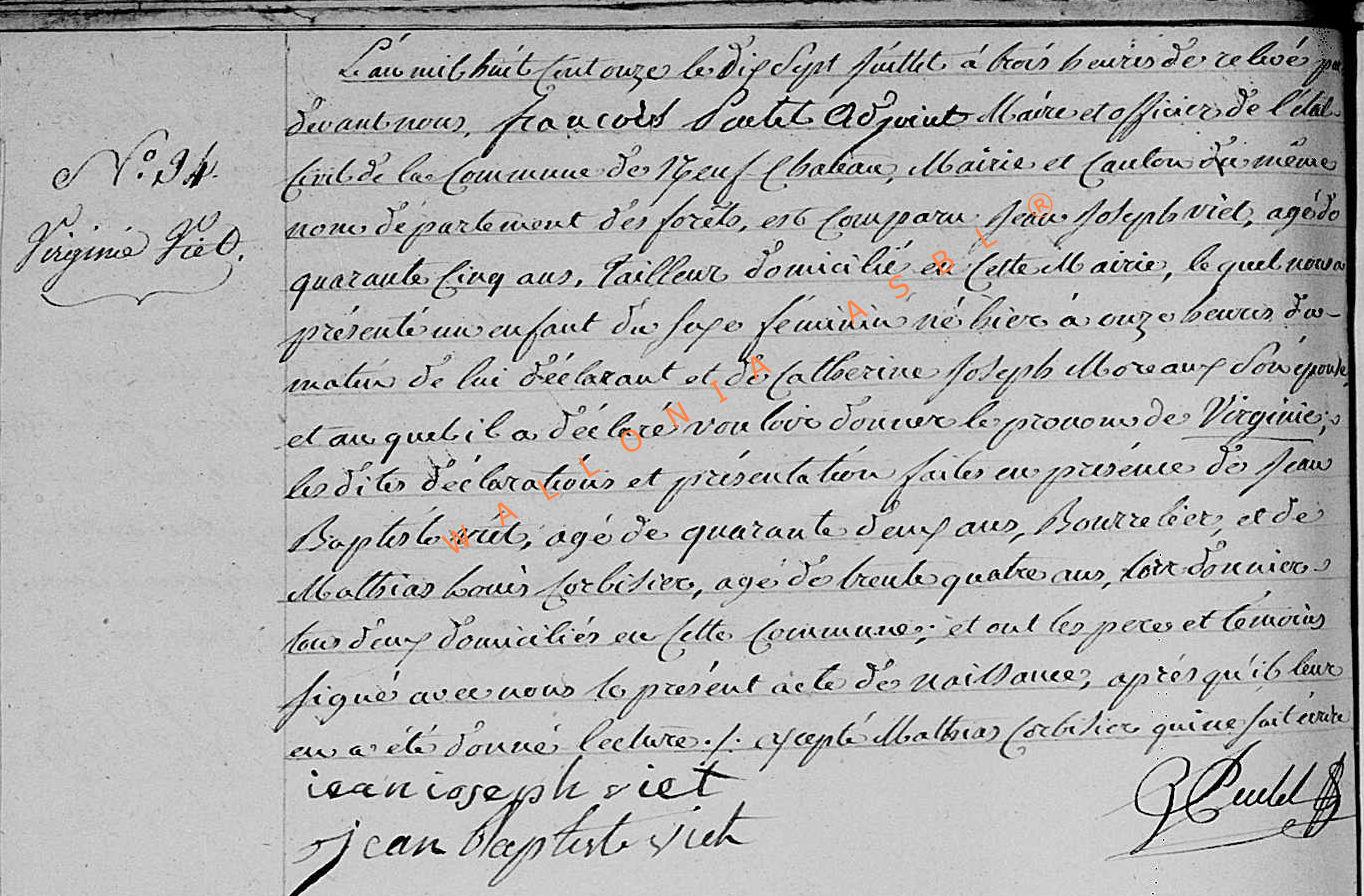 L'an mil huit Cent onze le dix Sept Juillet à trois heures de relevé par
devant nous, françois Poulet Adjoint Maire et officier de l'état
Civil de la Commune de Neuf Chateau, Mairie et Canton du même
nom département des forêts, est Comparu Jean Joseph viet, agé de
quarante Cinq ans, Tailleur domicilié en Cette Mairie, le quel nous a
présenté un enfant du Sexe féminin né hier à onze heures du
matin de lui déclarant et de Catherine Joseph Moreaux Son épouse,
et au quel il a déclaré vouloir donner le prenom de Virginie;
les dites déclarations et présentation faites en présence de Jean
Baptiste viet, agé de quarante deux ans, Bourrelier, et de
Mathias Louis Corbisier, agé de trente quatre ans, Cordonnier
tous deux domiciliés en Cette Commune; et ont les peres et témoins
signé avec nous le présent acte de naissance, après qu'il leur
en a été donné lecture ./. excepté Mathias Corbisier qui ne sait écrire
N.° 94.
Virginie Viet.
jean joseph viet
jean baptiste viet
WALLONIA ASBL ®